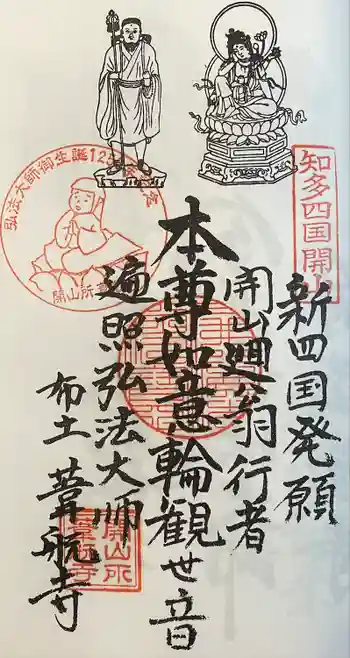 知多四国開山
新四国発願
開山廻翁行者
本尊如意輪観世音
遍照弘法大師
布土 葦航寺
弘法大師御生誕125
開山所
開山所
葦航寺